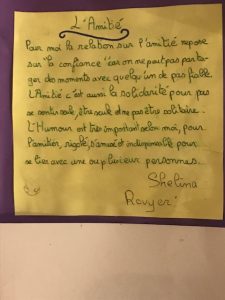 L'Amitié
Pour moi la relation sur l'amitié repose
sur "la confiance" car on ne peut pas parta-
ger des moments avec quelqu'un de pas fiable.
L'Amitié c'est aussi la solidarité pour pas
se sentir seule, être seule et ne pas être solitaire.
L'Humour est très important selon moi, pour
l'amitier, rigolé, s'amusé et indispensable pour
se lier avec une ou plusieur personnes.
Shelina
Royer